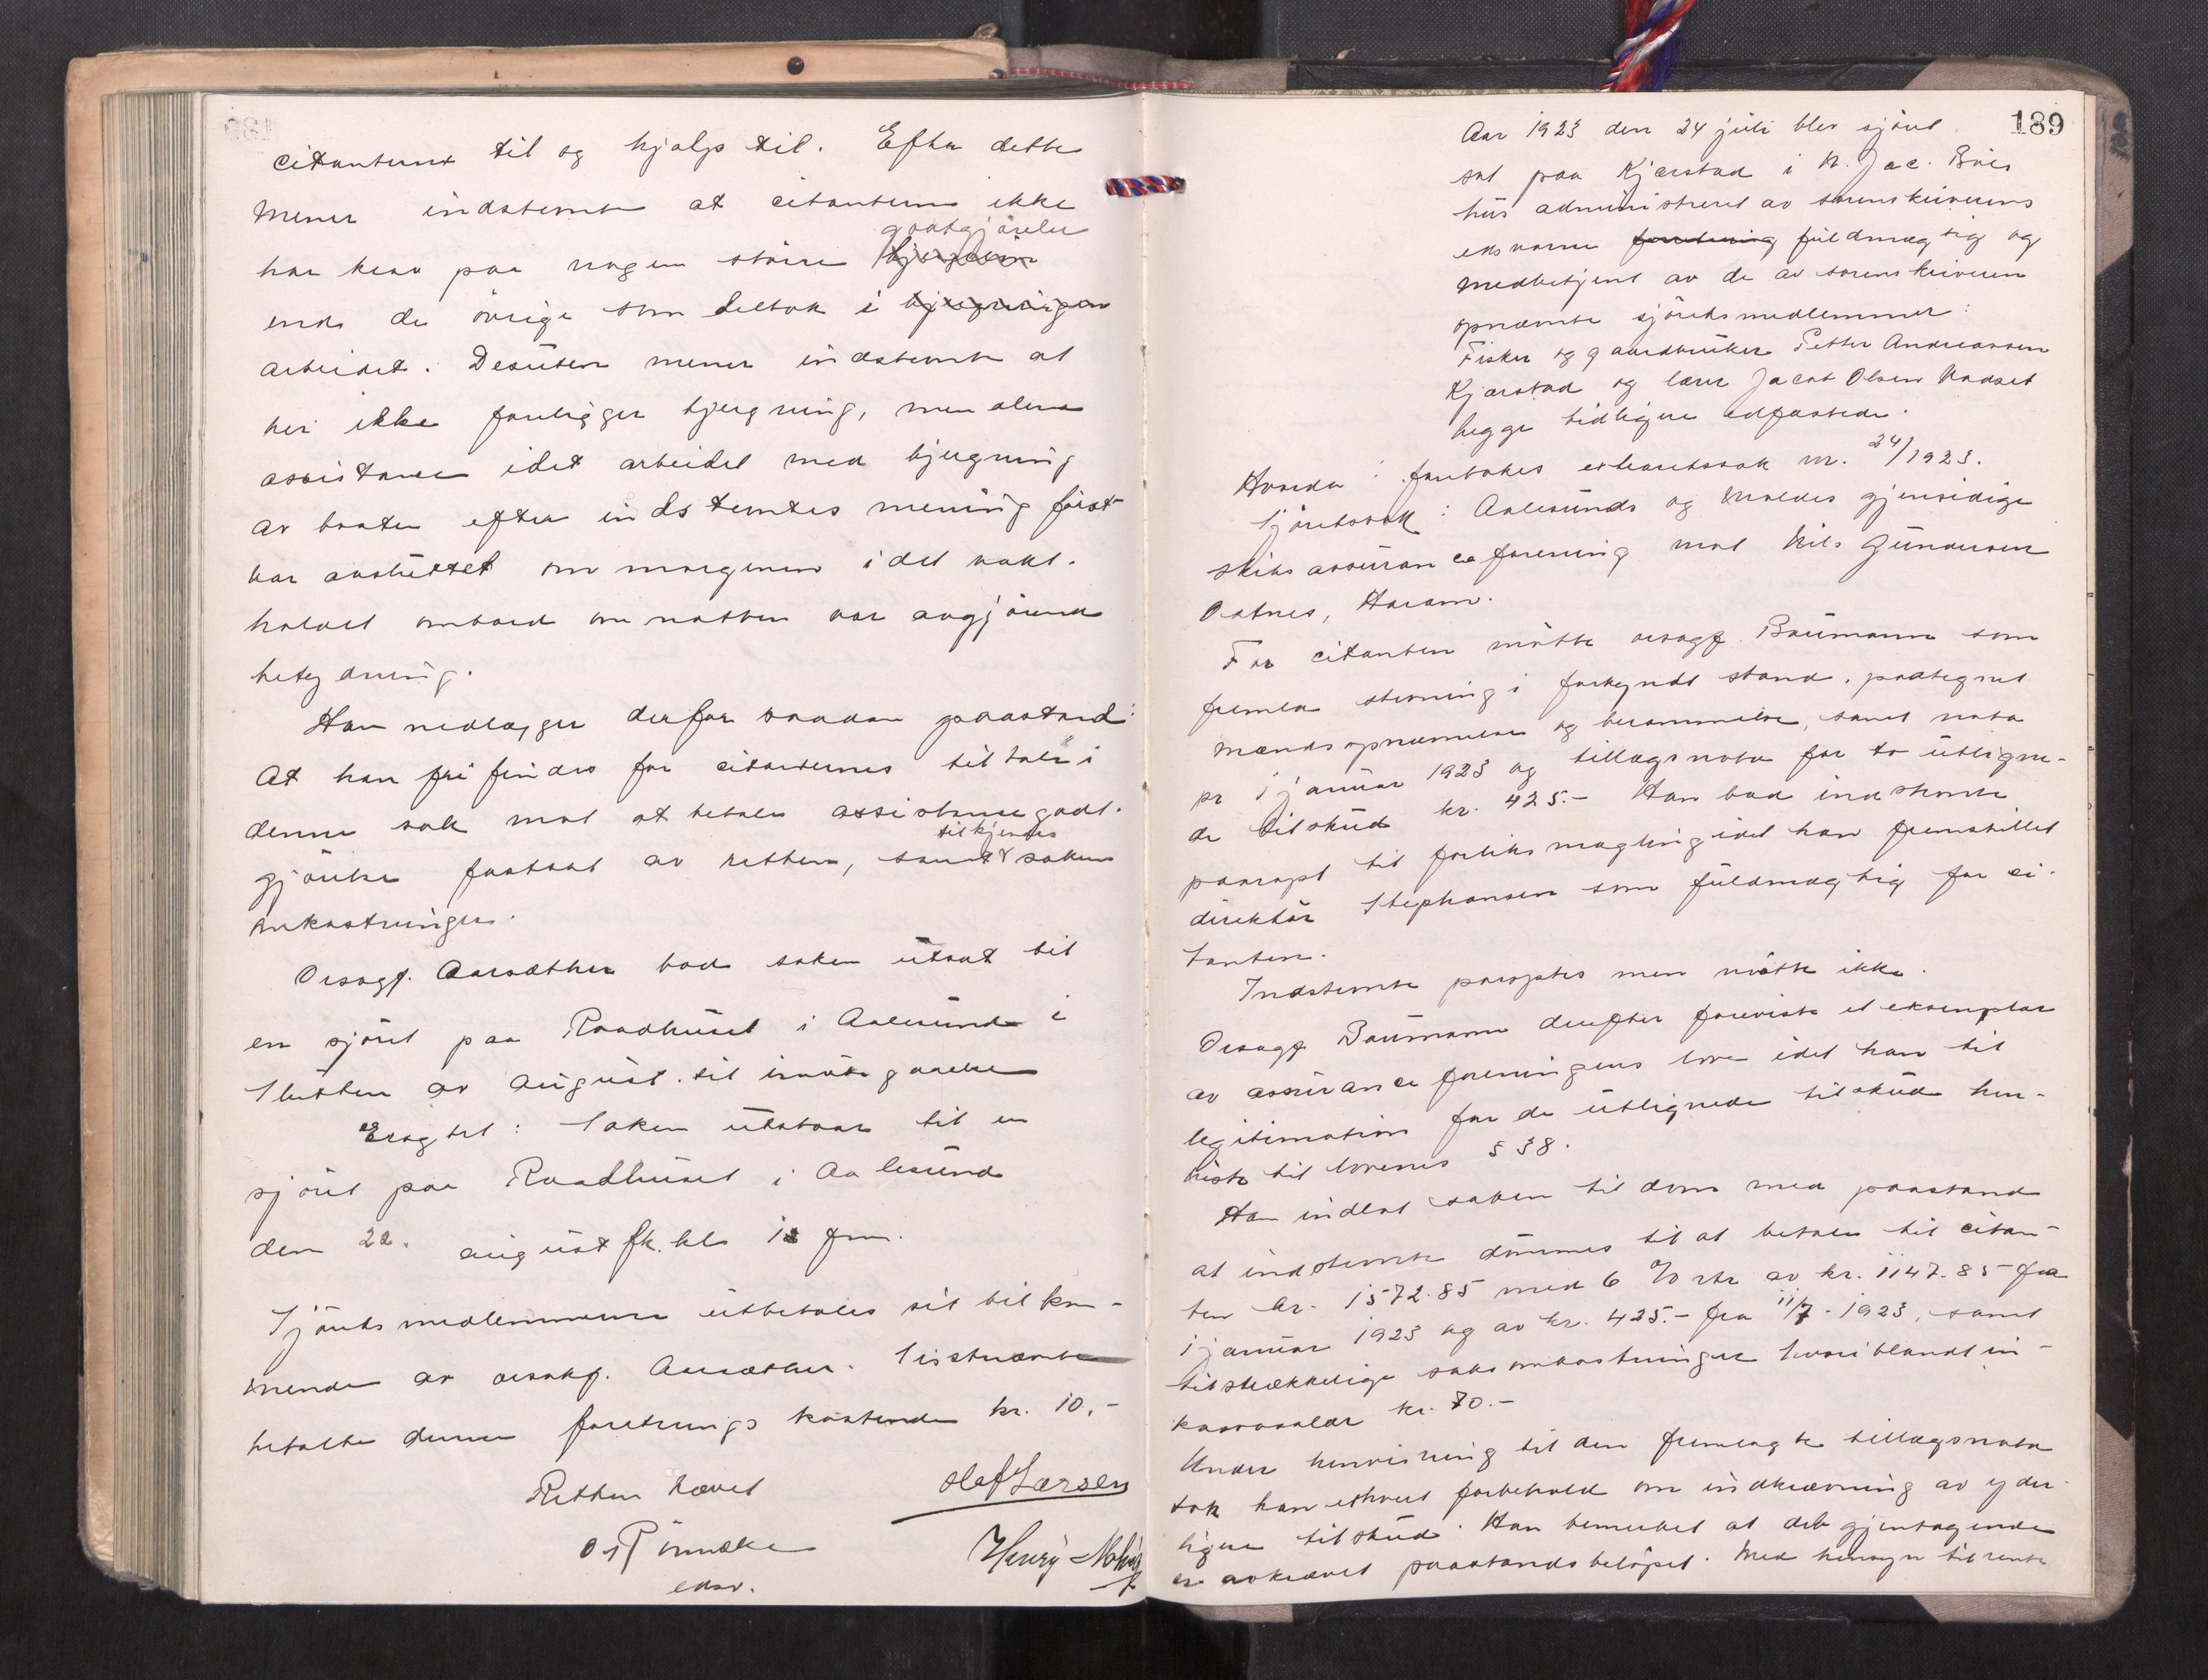 citanterne til og hjalp til. Efter dette
mener indstemte at citanterne ikke
godtgjörelse
har krav paa nogen större bjergelön
enn de övrige som deltok i bjergningen
arbeidet. Desuten mener indstemte at
her ikke foreligger bjergning, men alene
assistance idet arbeidet med bjergning
av baaten efter indstemtes mening först
var avsluttet om morgenen idet vakt-
holdet ombord om natten var avgjörende
betydning.
Han nedlægger derfor saadan paastand:
At han frifindes for citanternes tiltale i
denne sak mot at betale assistancegodt-
tilkjendes
gjörelse fastsat av retten, samt sakens
omkostninger.
Orsagf. Aarsæther bad saken utsat til
en sjöret paa Raadhuset i Aalesund i
slutten av august til imötegaaelse
Eragtet: Saken utstaar til en
sjöret paa Raadhuset i Aalesund
den 22. august fk. kl. 12 fm.
Sjöretsmedlemmerne utbetales sit tilkom-
mende av orsakf. Aarsæther. Sistnævnte
betalte denne foretnings kostende kr. 10,-
Retten hævet
Olaf Larsen
O. Rönneke
edsv.
Henry
189
Aar 1923 den 24 juli blev sjöret
sat paa Kjerstad i N. Jac. Böes
hus administreret av sorenskriverens
edsvorne foretning fuldmægtig og
medbetjent av de av sorenskriveren
opnævnte sjöretsmedlemmer:
Fisker og gaardbruker Petter Andreassen
Kjerstad og lærer Jacob Olsen Vadset
begge tidligere edfæstede.
Hvorda: foretokes extraretssak nr. 24/1923.
Sjöretssak: Aalesunds og Moldes gjensidige
skibsassuranceforening mot Nils Gundersen
Oatnes, Haram.
For citanten mötte orsagf. Baumann som
fremla stevning i forkyndt stand, paategnet
mændsopnævnelse og berammelse, samt nota
pr 1 januar 1923 og tillægsnota for to utligne-
de tilskud kr. 425.- Han bad indstevnte
paaropt til forliksmægling idet han fremstillet
direktör Stephansen som fuldmægtig for ci-
tanten.
Indstevnte paaroptes men mötte ikke.
Orsagf Baumann derefter foreviste et eksemplar
av assuranceforeningens love idet han til
legitimation for de utlignede tilskud hen-
viste til lovenes § 38.
Han indlot saken til dom med paastand
at indstevnte dömmes til at betale til citan-
ten kr. 1572.85 med 6 % rte av kr. 1147.85 fra
1 januar 1923 og av kr. 425.- fra 11/7-1923, samt
tilstrækkelige saksomkostninger hvoriblandt in-
kassosalær kr. 70.-
Under henvisning til den fremlagte tillægsnota
tok han ethvert forbehold om indkrævning av yder-
ligere tilskud. Han bemerket at det gjentagende
er avkrævet paastandsbelöpet. Med hensyn til rente